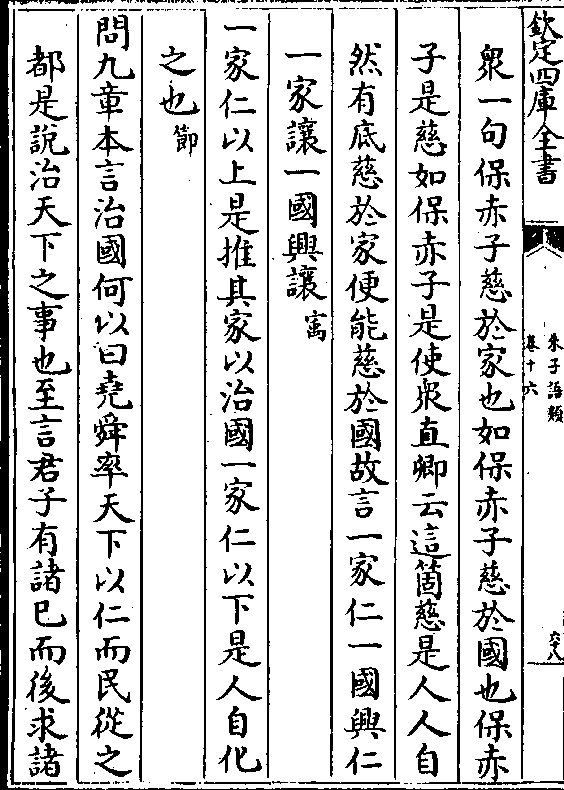 欽定四庫全書
朱子語類
卷十六
六八
衆一句保赤子慈於家也如保赤子慈於國也保赤
子是慈如保赤子是使衆直卿云這箇慈是人人自
然有底慈於家便能慈於國故言一家仁一國興仁
一家讓一國興讓㝢
一家仁以上是推其家以治國一家仁以下是人自化
之也節
問九章本言治國何以曰堯舜率天下以仁而民從之
都是說治天下之事也至言君子有諸已而後求諸